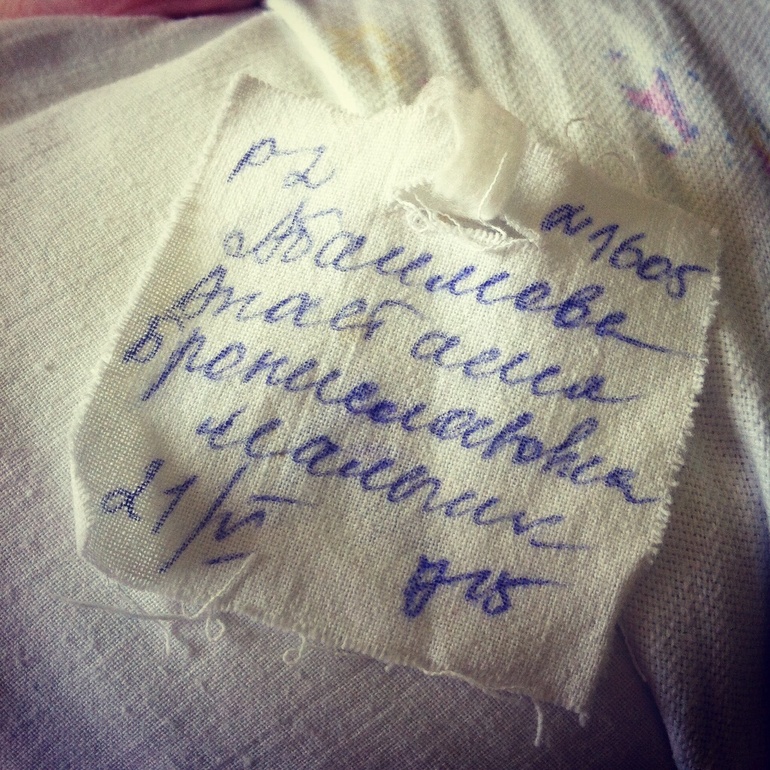 р2 №1605
Абаимова
Анастасия
Брониславовна
мальчик
21/VI 715